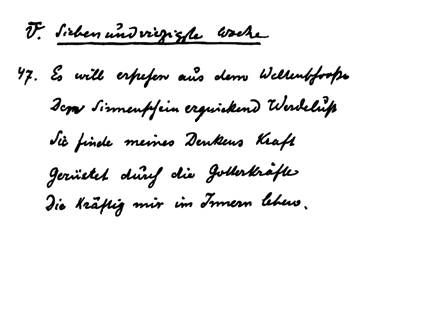 V. Siebenundvierzigste Woche
47. Es will erstehen aus dem Weltenschoße
Den Sinnenschein erquickend Werdelust
Sie finde meines Denkens Kraft
Gerüstet durch die Gotteskräfte
Die Kräftig mir im Innern leben.